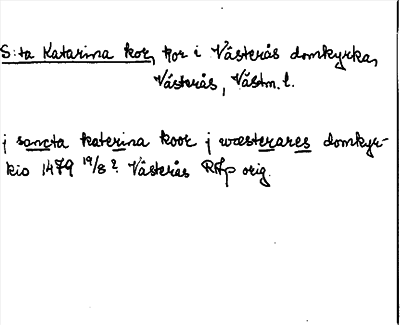 S:ta Katarina kor, kor i Västerås domkyrka,
Västerås, Västm. l.
j sancta katerina koor j wæsterares domkyr-
kio 1479 19/8 ? Västerås RAp orig.